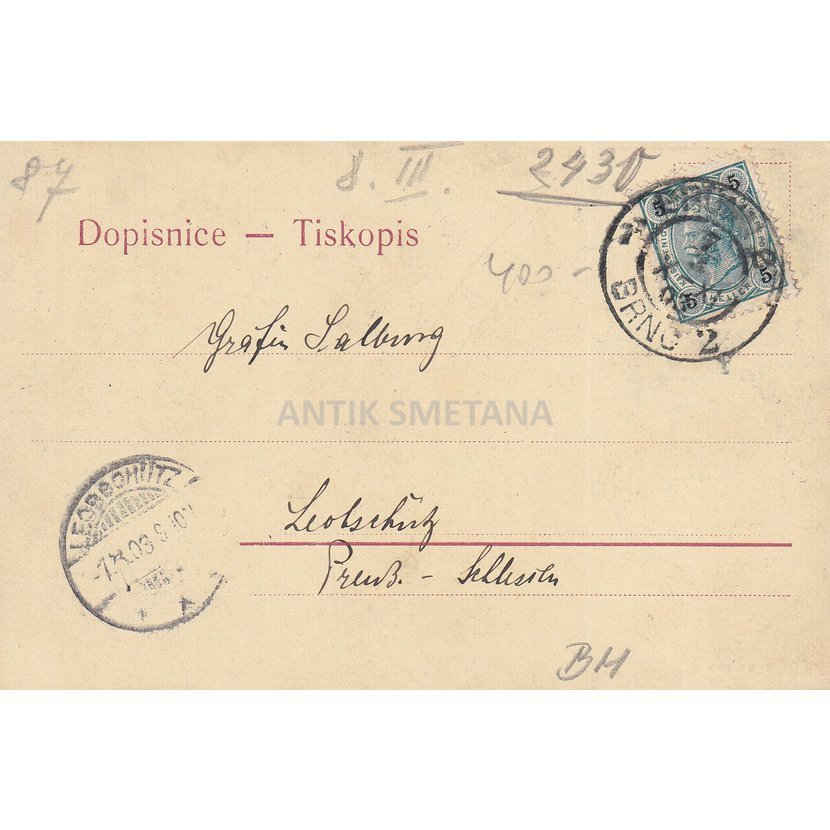 87
8. III.
2430
Dopisnice — Tiskopis
400 -
5 5
5 5
HELLER
BRNO 2
Gräfin Salburg
ANTIK SMETANA
LEOBSCHÜTZ
Leobschütz
Preuß. - Schlesien
BH